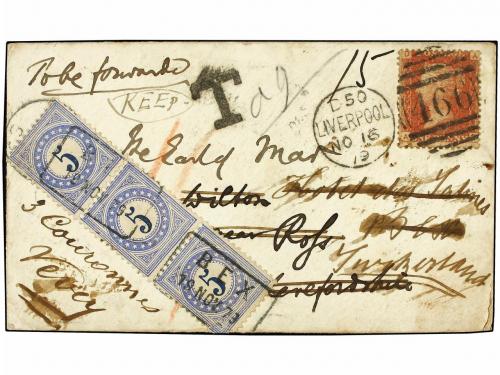 To be forwarded
KEEP
T
15
D50
LIVERPOOL
NO 16
79
466
The Earl of Mar
Wilton
Hotel des Salines
near Ross
BEX
Herefordshire
Switzerland
3 Couronnes
Vevey
5
25
25
BEX
18 NOV 79